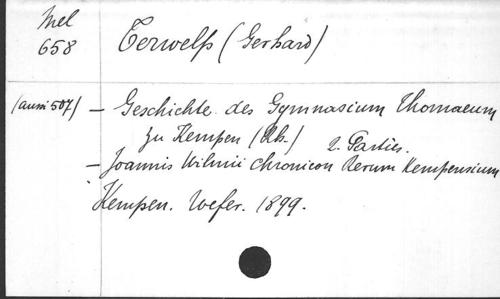 Mel
658
Terwelp (Gerhard)
(aussi 507) — Geschichte des Gymnasium Thomaeum
zu Kempen (Rh.) 2. Parties.
— Joannis Wilmii Chronicon Rerum Kempensium
Kempen. Wefer. 1899.